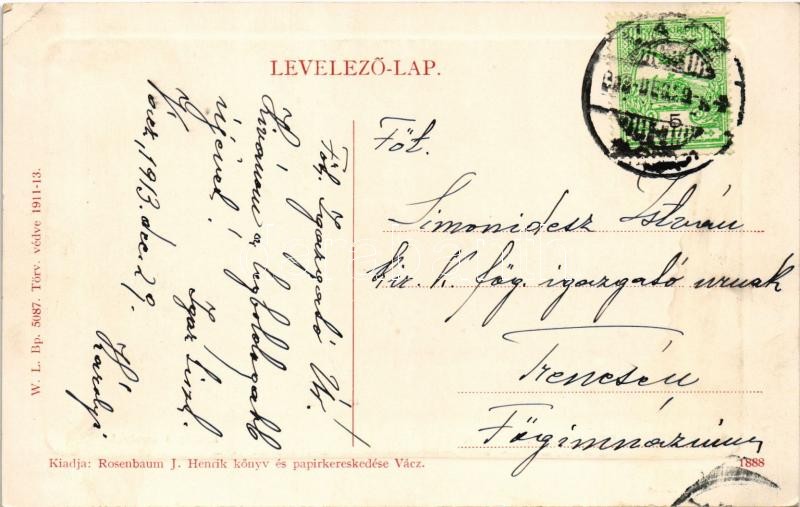 LEVELEZŐ-LAP.
5
Főt. Igazgató Úr!
Kívánom a legboldogabb
újévet!
Igaz tiszt.
Károlyi
1913. dec. 29.
Főt.
Simonidesz István
kir. k. főg. igazgató urnak
Trencsén
Főgimnázium
W. L. Bp. 5087. Törv. védve 1911-13.
Kiadja: Rosenbaum J. Henrik könyv és papirkereskedése Vácz.
1888